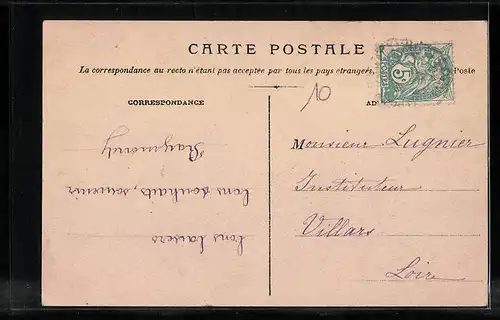 CARTE POSTALE
La correspondance au recto n'étant pas acceptée par tous les pays étrangers, Poste
CORRESPONDANCE
AD
10
5
Monsieur Lugnier
Instituteur
Villars
Loire
bons baisers
bons souhaits, souvenir
Raymond